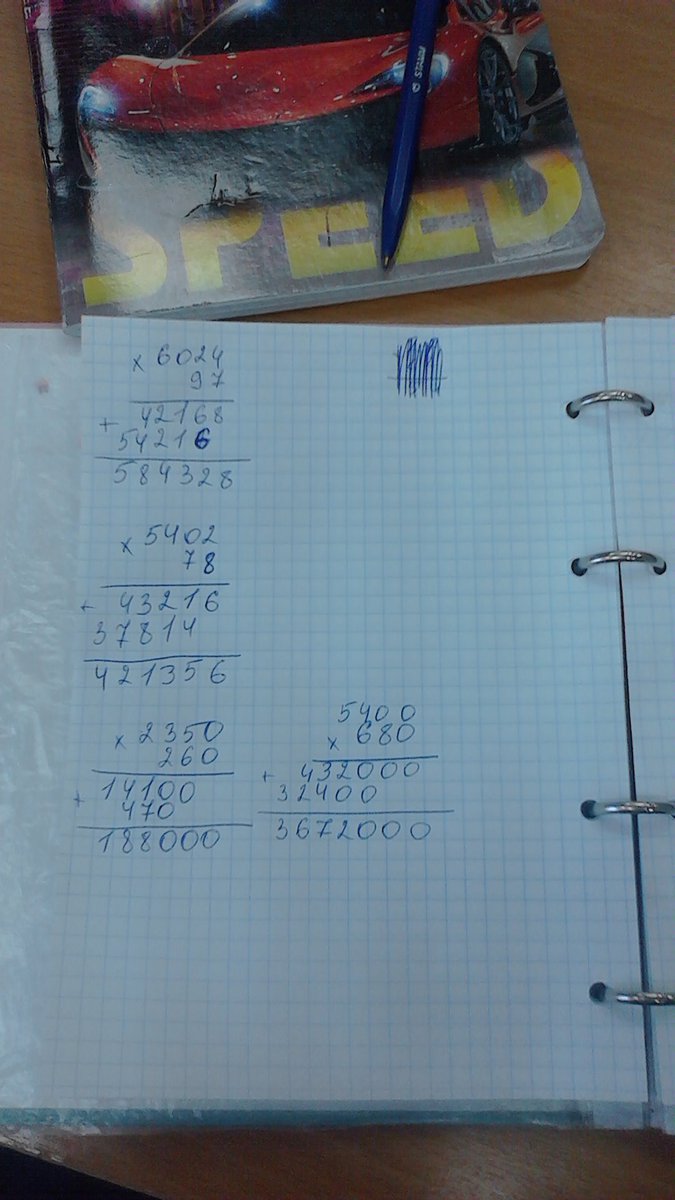 STAMM
SPEED
× 6024
97
+ 42168
54216
584328
× 5402
78
+ 43216
37814
421356
× 2350
260
+ 14100
470
188000
5400
× 680
+ 432000
32400
3672000